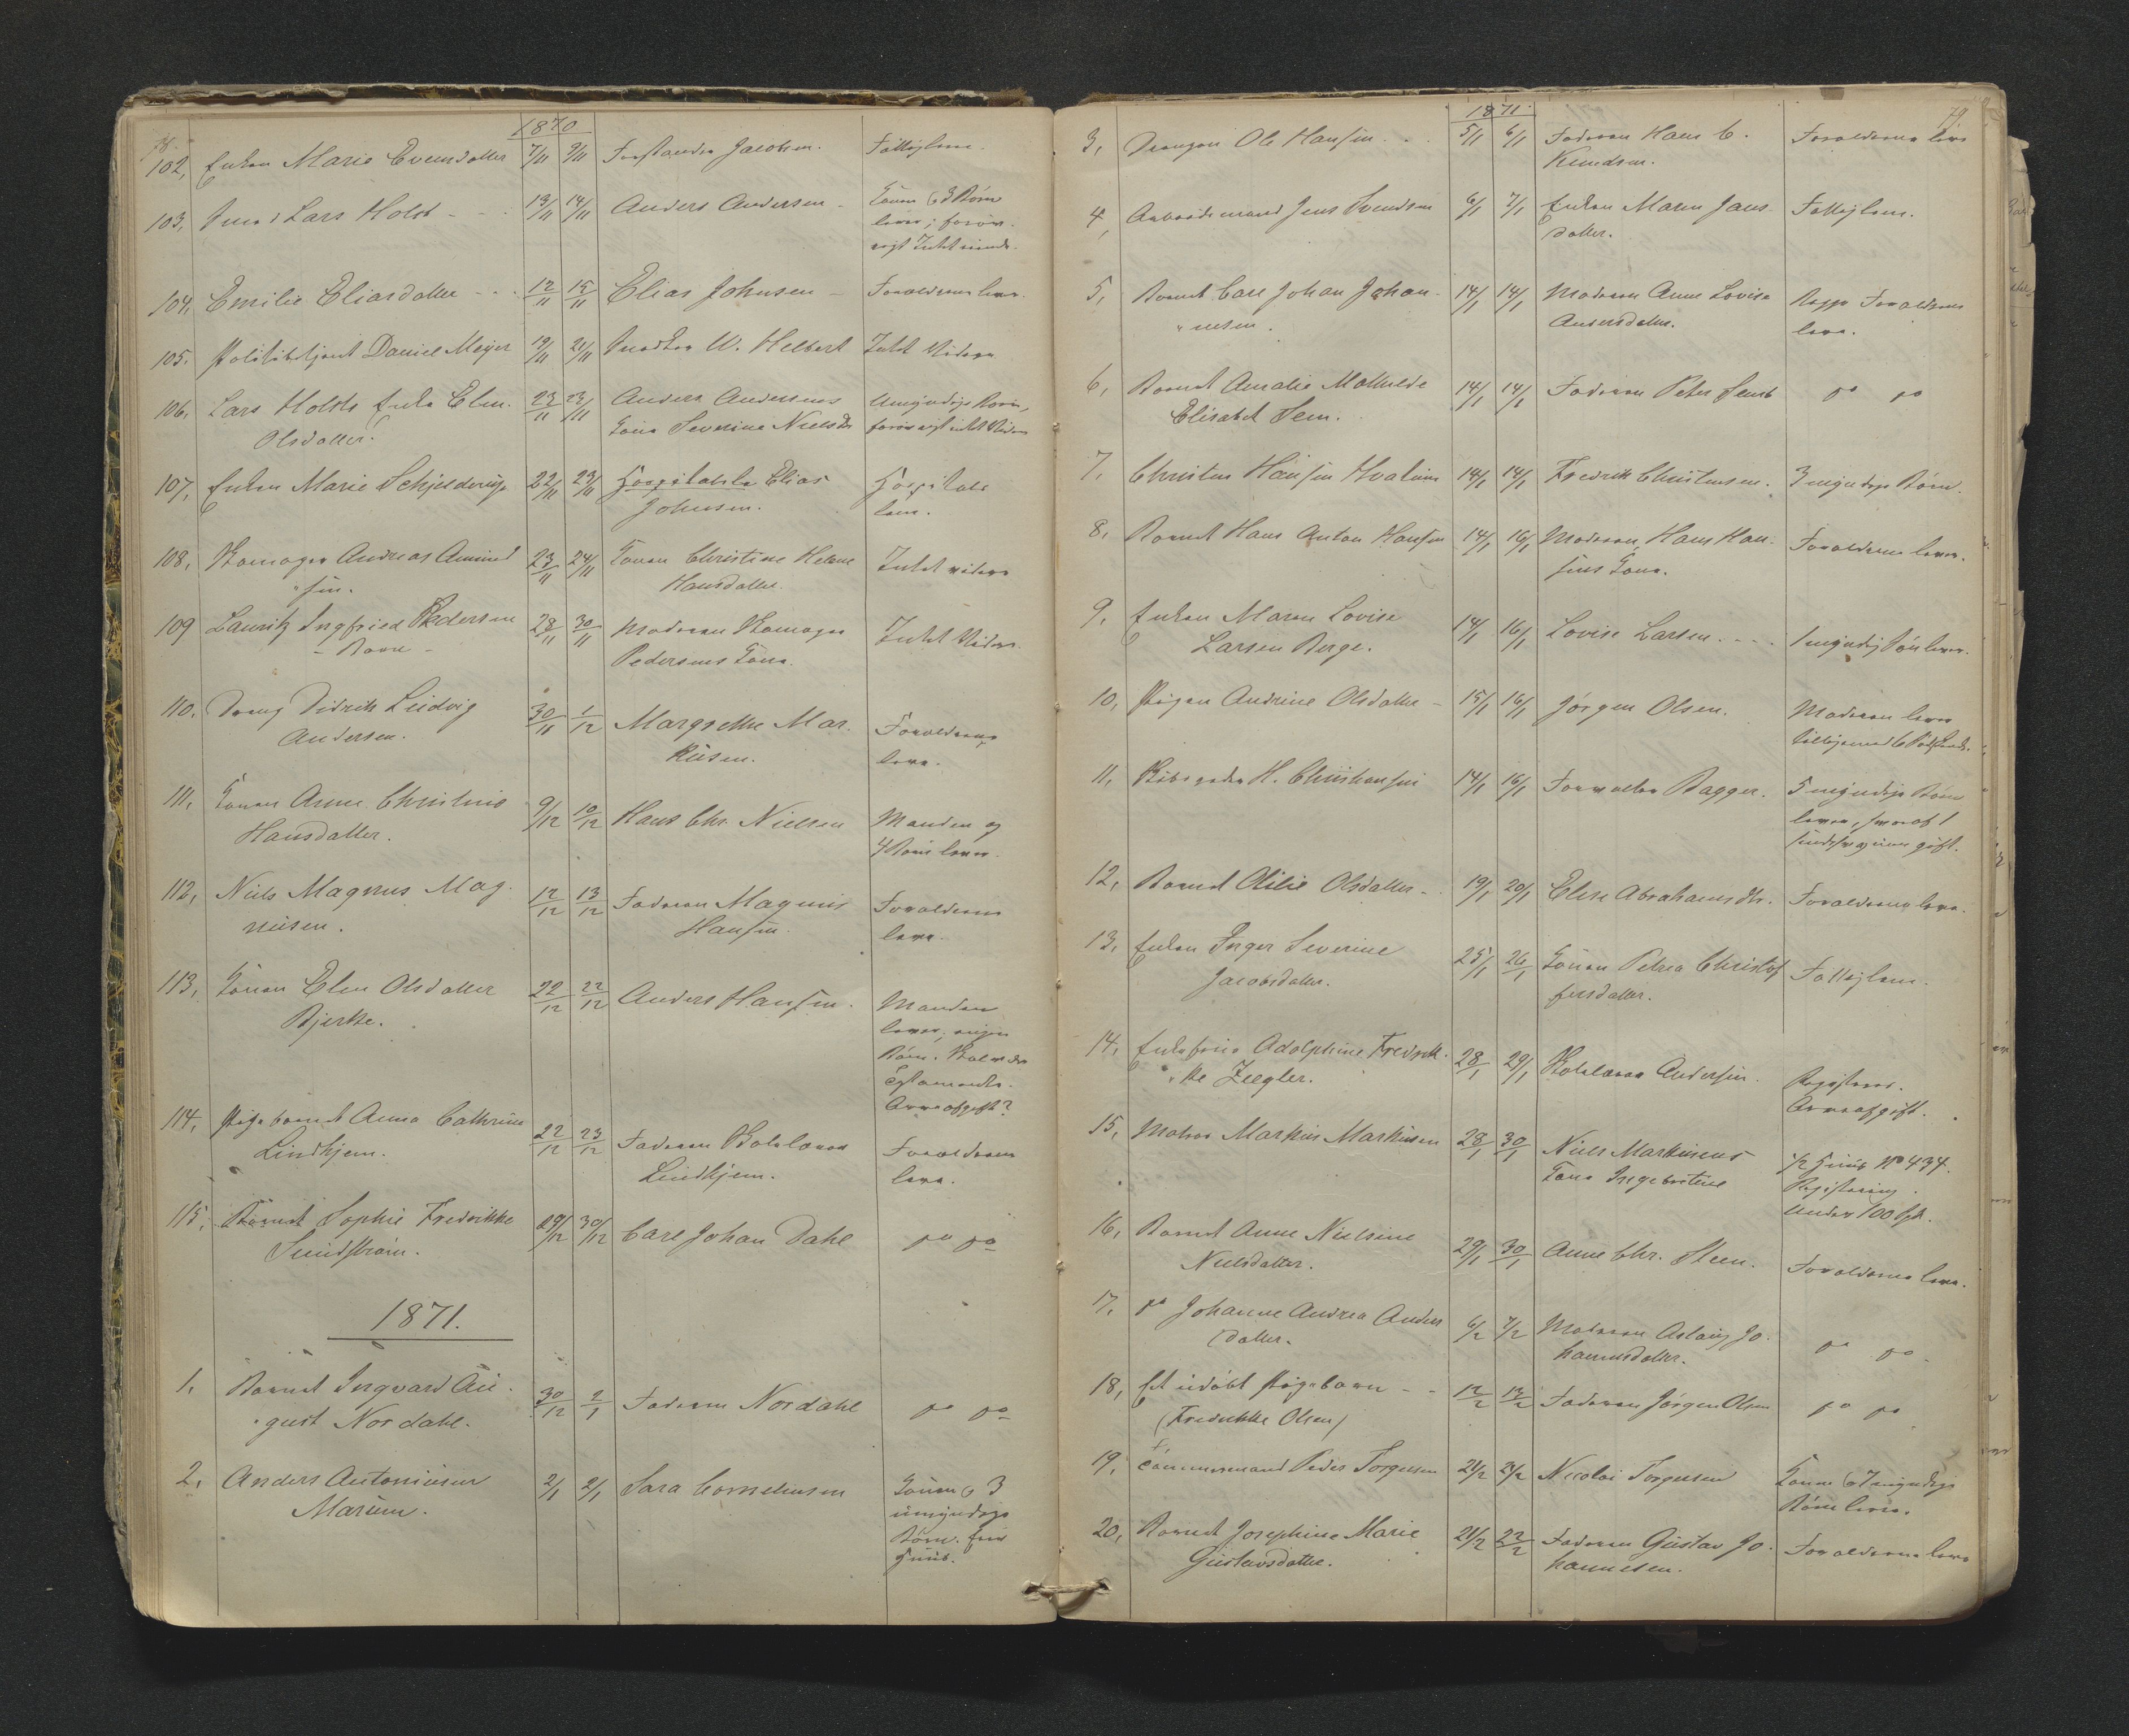 78.
1870
102, Enken Marie Evensdatter 7/11 9/11 Forstander Jacobsen. Fattiglem.
103, Lars Holst - - - 13/11 14/11 Anders Andersen - Konen & 3 Børn
lever; forøv-
rigt Intet
104, Emilie Eliasdatter - - - 12/11 15/11 Elias Johnsen - Forældrene lever.
105. Politibetjent Daniel Meyer 19/11 21/11 W. Helbert Intet videre
106, Lars Holsts Enke Elen 23/11 23/11 Anders Andersens Umyndige Børn,
Olsdatter. Kone Severine Nielsdr forøvrigt intet videre
107, Enken Marie Schjelderup 22/11 23/11 Hospitalsl. Elias Hospitals
Johnsen. lem.
108, Skomager Andreas Amund 23/11 24/11 Konen Christine Helene Intet videre
sen. Hansdatter.
109 Lauritz Ingfried Pedersen 28/11 30/11 Moderen Skomager Intet videre
- Barn - Pedersens Kone.
110. Dreng Didrik Ludvig 30/11 1/12 Margrethe Mar- Forældrene
Andersen. kusen. lever.
111, Konen Anne Christine 9/12 10/12 Hans Chr. Nielsen Manden og
Hansdatter. 4 Børn lever.
112, Niels Magnus Mag- 12/12 13/12 Faderen Magnus Forældrene
nusen. Hansen. lever.
113, Konen Elen Olsdatter 22/12 22/12 Anders Hansen. Manden
Bjerke. lever, ingen
Børn.
Arveafgift?
114, Pigebarnet Anna Cathrine 22/12 23/12 Faderen Forældrene
Lindhjem. Lindhjem. lever.
115, Barnet Sophie Fredrikke 29/12 30/12 Carl Johan Dahl do do
Sundstrøm.
1871.
1, Barnet Ingvard Au- 30/12 2/1 Faderen Nordahl do do
gust Nordahl.
2, Anders Antoniusen 2/1 2/1 Sara Corneliussen Konen & 3
Marum. umyndige
Børn.
79.
1871.
3, Drengen Ole Hansen . . . 5/1 6/1 Faderen Hans C. Forældrene lever
Knudsen.
4, Arbeidsmand Jens Svendsen 6/1 7/1 Enken Maren Jans- Fattiglem.
datter.
5, Barnet Carl Johan Johan- 14/1 14/1 Moderen Anne Lovise Forældrene
nesen. Andersdatter. lever.
6, Barnet Amalie Mathilde 14/1 14/1 Faderen Peter Sem do do
Elisabet Sem.
7, Christen Hansen Hvalum 14/1 14/1 Fredrik Christensen. 3 myndige Børn.
8, Barnet Hans Anton Hansen 14/1 16/1 Moderen, Hans Han- Forældrene lever.
sens Kone.
9, Enken Maren Lovise 14/1 16/1 Lovise Larsen. - - - 1 myndig Søn lever.
Larsen Berge.
10, Pigen Andrine Olsdatter - 15/1 16/1 Jørgen Olsen. Moderen lever
11, H. Christiansen 14/1 16/1 Forvalter Bagger. 5 myndige Børn
lever, hvoraf 1
gift.
12, Barnet Olilie Olsdatter - 19/1 20/1 Elise Abrahamsdtr. Forældrene lever.
13, Enken Inger Severine 25/1 26/1 Konen Petrea Christof Fattiglem.
Jacobsdatter. fersdatter.
14, Enkefrue Adolphine Fredrik- 28/1 29/1 Andersen. Registreres.
ke Ziegler. Arveafgift.
15, Matros Markus Markusen 28/1 30/1 Niels Markusens 1/2 Huus No 434.
Kone Ingebortine Registrering.
under 100 Spd.
16, Barnet Anne Nielsine 29/1 30/1 Anne Chr. Steen. Forældrene lever.
Nielsdatter.
17, do Johanne Andrea Anders 6/2 7/2 Moderen Aslaug Jo- do do
datter. hannesdatter.
18, Et udøbt Pigebarn - - 12/2 13/2 Faderen Jørgen Olsen do do
(Fredrikke Olsen)
19, Tømmermand Peder Torgersen 21/2 21/2 Nicolai Torgersen Konen & 7 myndige
Børn lever.
20, Barnet Josephine Marie 21/2 22/2 Faderen Gustav Jo- Forældrene lever
Gustavsdatter. hannesen.